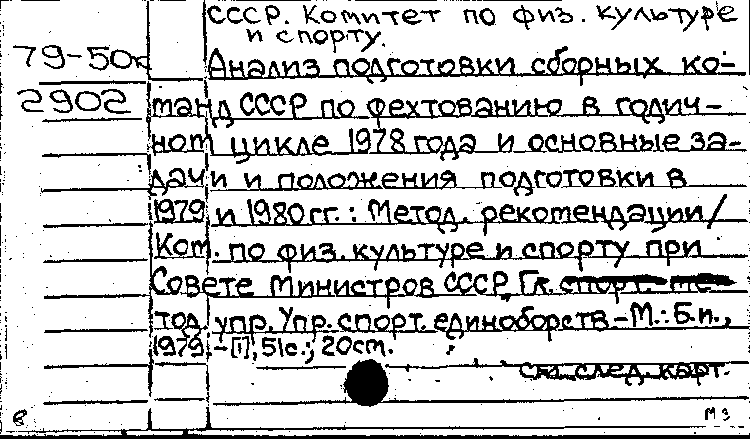 СССР. Комитет по физ. культуре
и спорту.
79-50к
Анализ подготовки сборных ко-
2902
манд СССР по фехтованию в годич-
ном цикле 1978 года и основные за-
дачи и положения подготовки в
1979 и 1980 гг.: Метод. рекомендации/
Ком. по физ. культуре и спорту при
Совете Министров СССР, Гл. спорт.-ме-
тод. упр. Упр. спорт. единоборств - М.: Б.и.,
1979. - [1], 51с.; 20см.
см. след. карт.
в
МЗ